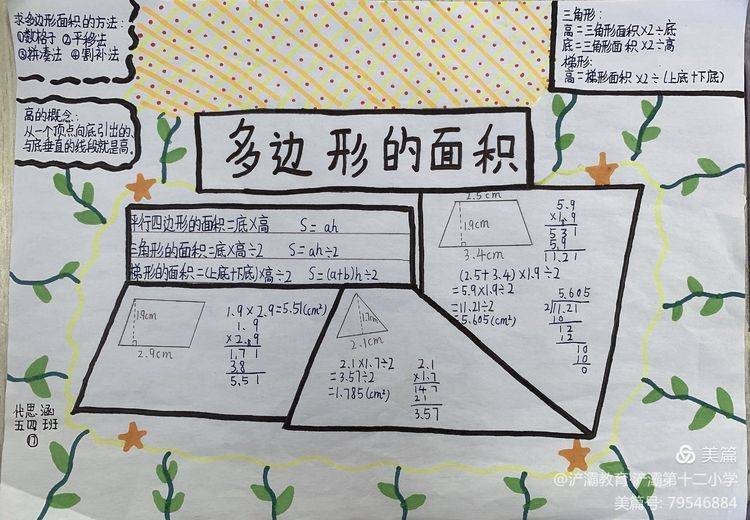 求多边形面积的方法:
①数格子 ②平移法
③拼凑法 ④割补法
三角形:
高=三角形面积×2÷底
底=三角形面积×2÷高
梯形:
高=梯形面积×2÷(上底+下底)
高的概念:
从一个顶点向底引出的、
与底垂直的线段就是高。
多边形的面积
平行四边形的面积=底×高 S=ah
三角形的面积=底×高÷2 S=ah÷2
梯形的面积=(上底+下底)×高÷2 S=(a+b)h÷2
2.5cm
1.9cm
3.4cm
(2.5+3.4)×1.9÷2
=5.9×1.9÷2
=11.21÷2
=5.605(cm²)
5.9
×1.9
531
5.9
11.21
5.605
2/11.21
10
12
12
10
10
0
1.9cm
2.9cm
1.9×2.9=5.51(cm²)
1.9
×2.9
1.71
3.8
5.51
1.7cm
2.1cm
2.1×1.7÷2
=3.57÷2
=1.785(cm²)
2.1
×1.7
147
21
3.57
代思涵
五四班
⑰
美篇
@浐灞教育浐灞第十二小学
美篇号: 79546884